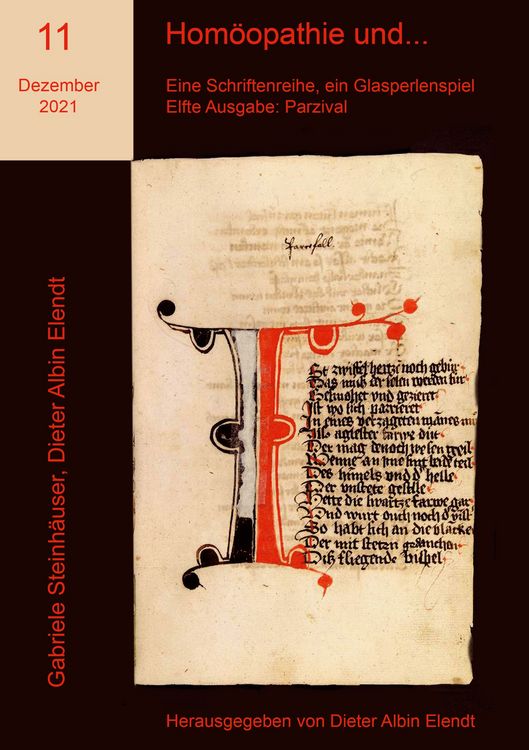 11
Dezember
2021
Homöopathie und...
Eine Schriftenreihe, ein Glasperlenspiel
Elfte Ausgabe: Parzival
Gabriele Steinhäuser, Dieter Albin Elendt
parcefall
St zwiffel hertze noch gebur
Das muß der selen werden sur
Gesmohet vnd gezieret
Ist wo sich parrieret
In eines verzageten mãnes
Als agelster farwe dut
Der mag denoch wesen geil
Wenne an ime sint beide teil
Des himels vnd d' helle
Der vnstete geselle
Hette die swartze farwe gar
Vnd wurt ouch noch d'
So habt sich an die blancke
Der mit stetzn gedancken
Diß fliegende bisbel
Herausgegeben von Dieter Albin Elendt